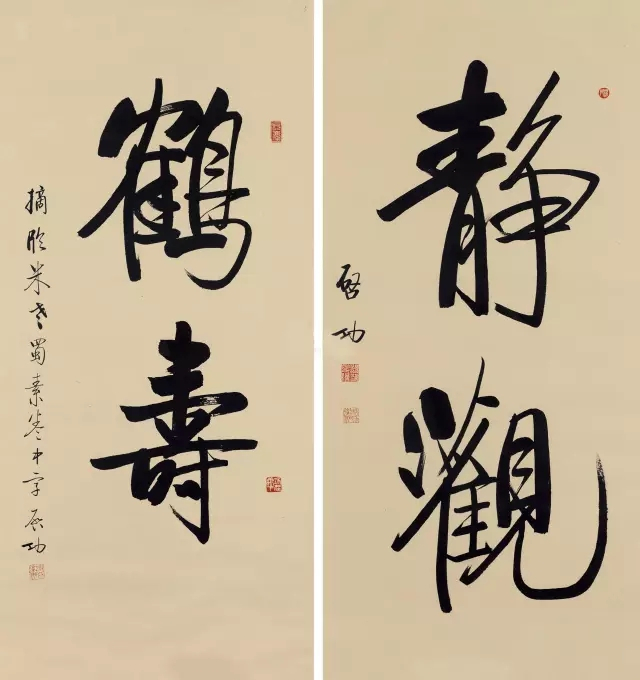 靜觀
啟功
鶴壽
摘臨米老蜀素卷中字 啟功